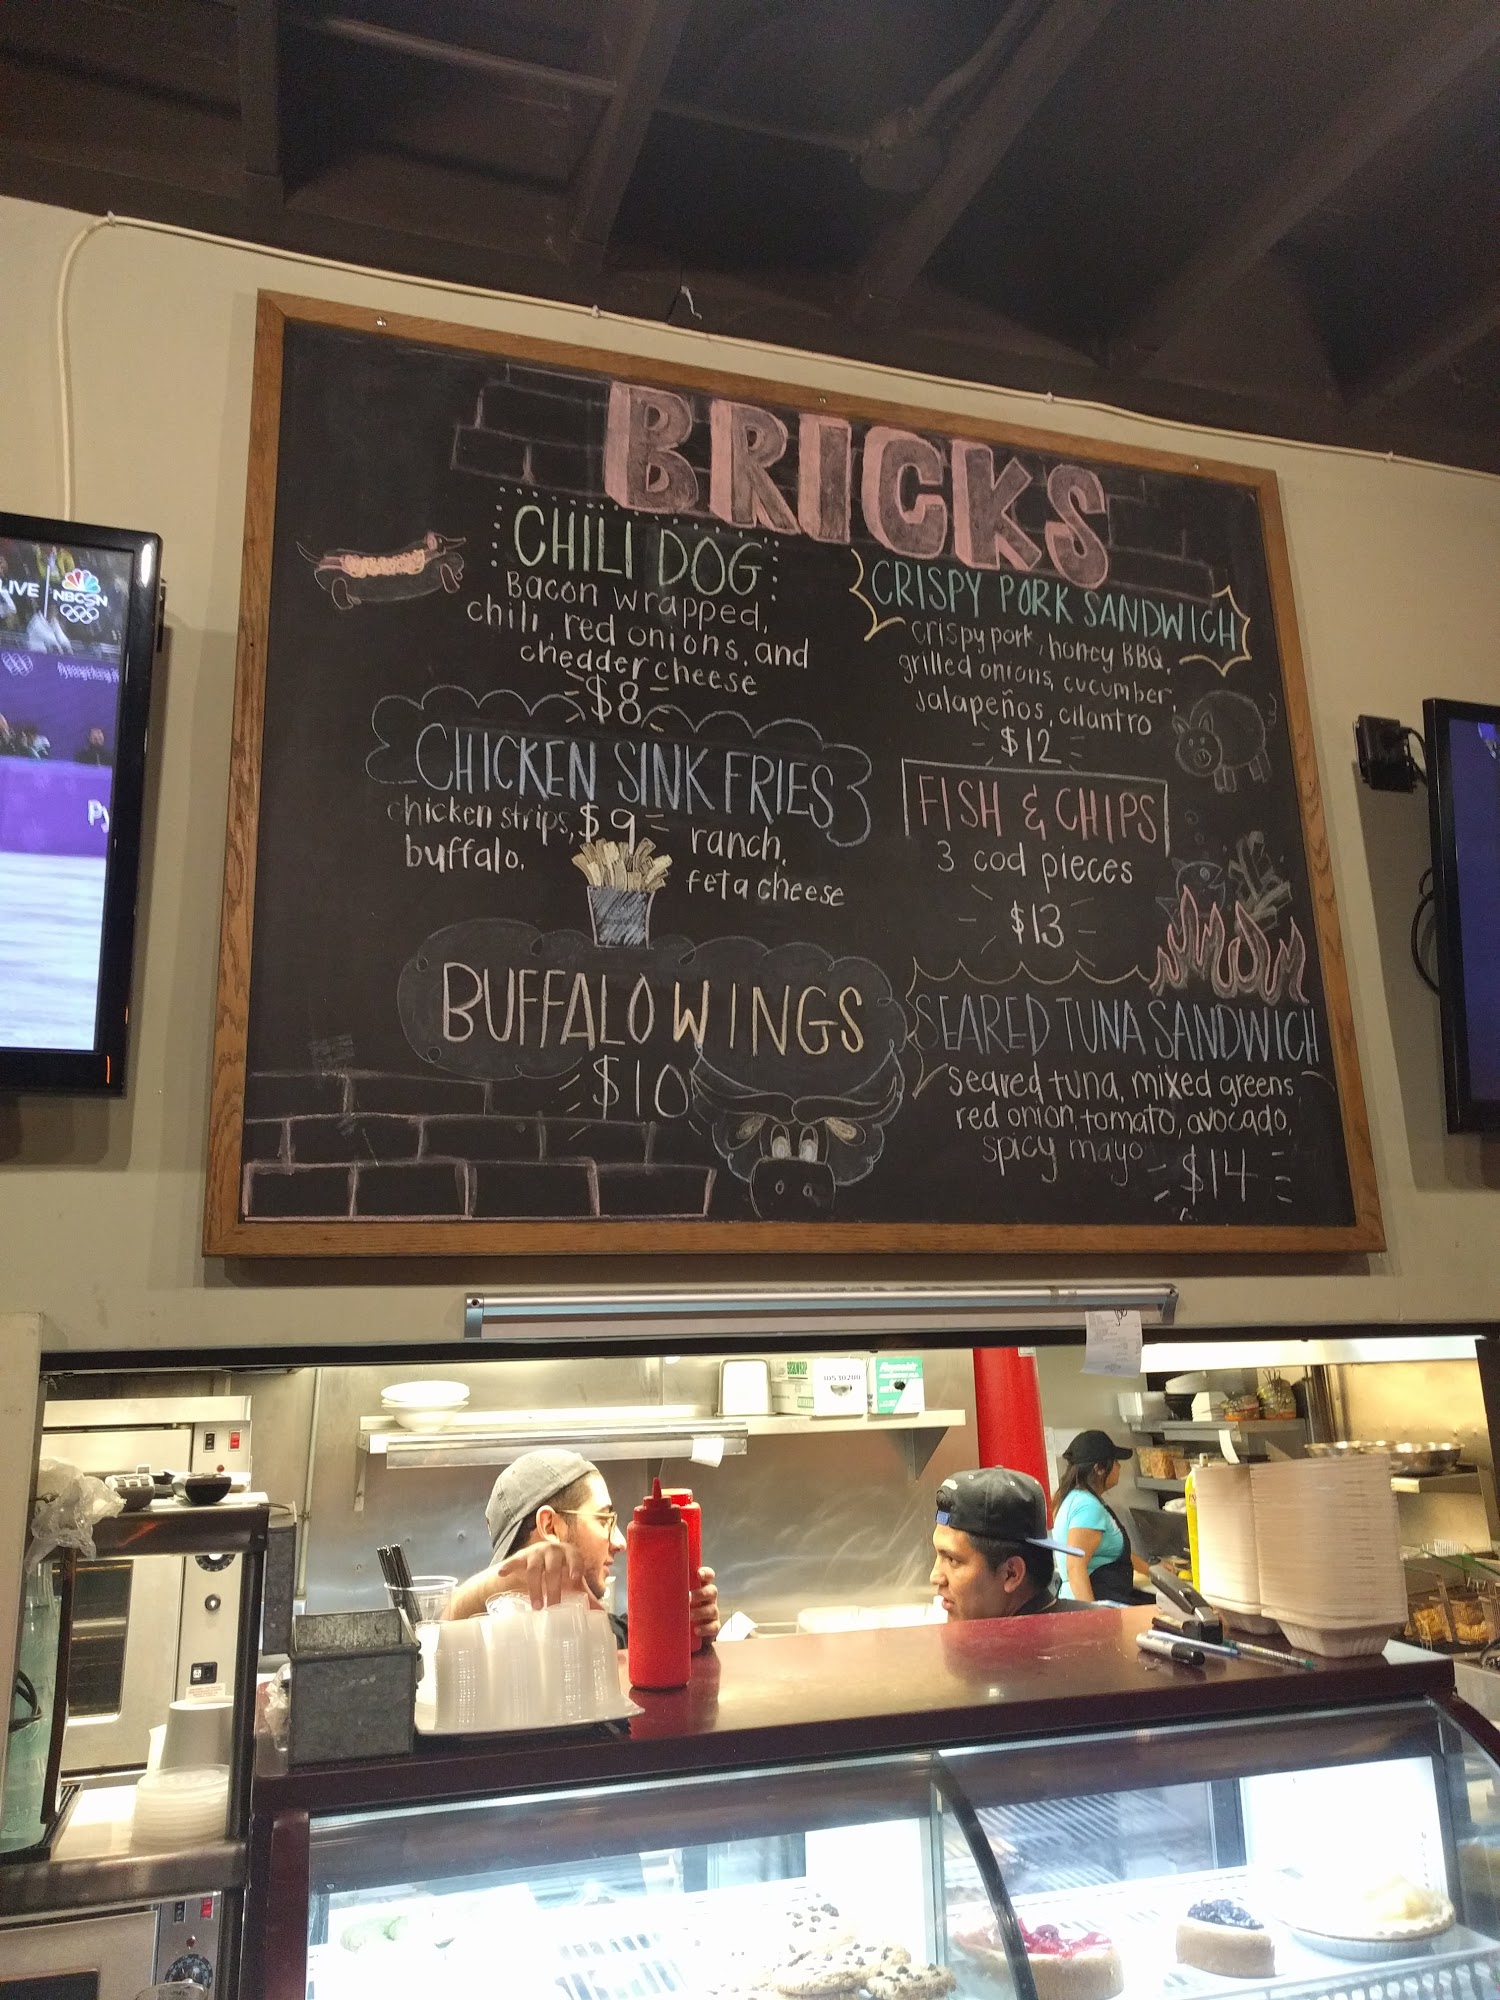 BRICKS
CHILI DOG
Bacon wrapped,
chili, red onions, and
chedder cheese
$8
CHICKEN SINK FRIES
chicken strips, $9 ranch,
buffalo, feta cheese
BUFFALO WINGS
$10
CRISPY PORK SANDWICH
crispy pork, honey BBQ,
grilled onions, cucumber,
jalapeños, cilantro
$12
FISH & CHIPS
3 cod pieces
$13
SEARED TUNA SANDWICH
seared tuna, mixed greens
red onion, tomato, avocado,
spicy mayo
$14
LIVE
NBCSN